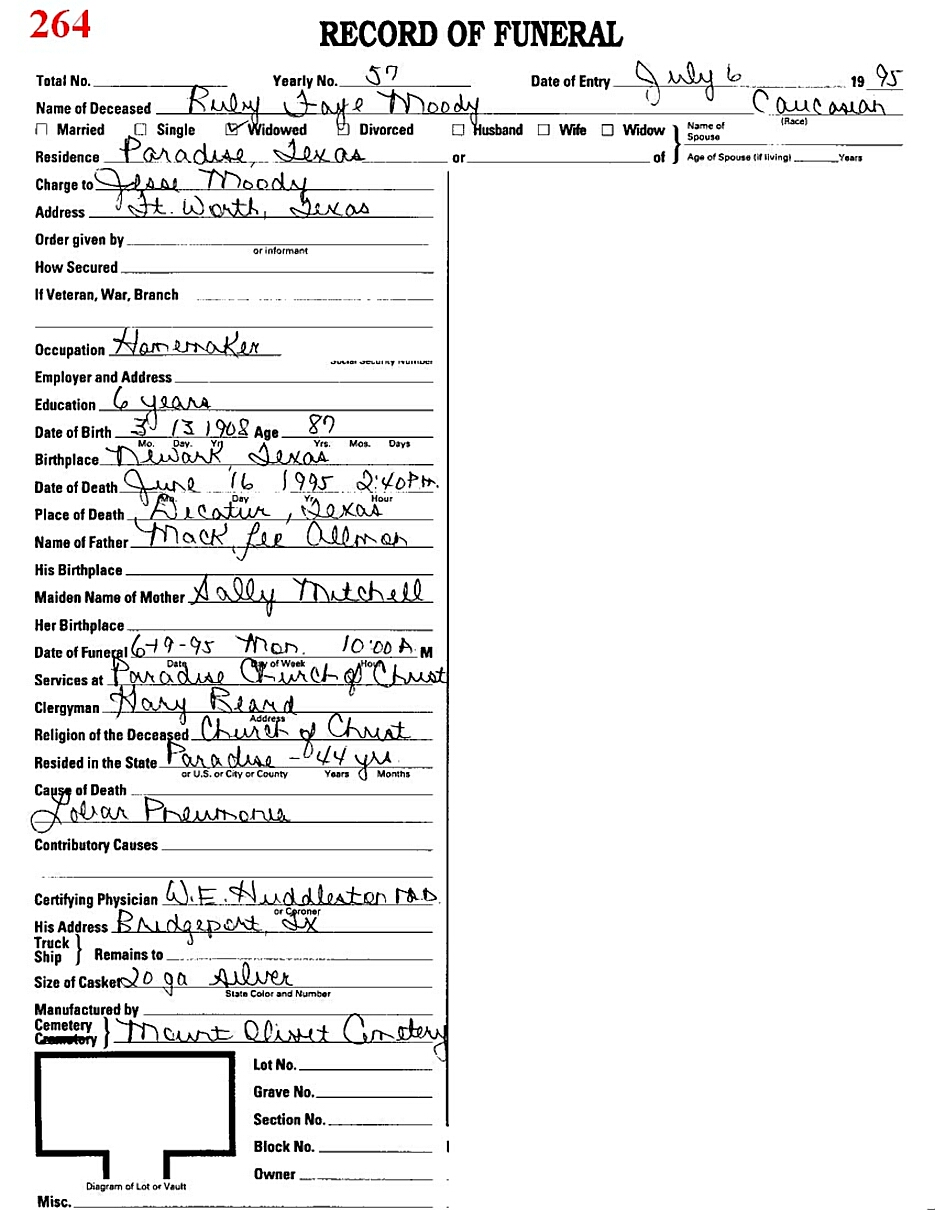 264
RECORD OF FUNERAL
Total No. Yearly No. 57 Date of Entry July 6 19 95
Name of Deceased Ruby Faye Moody Caucasian
(Race)
☐ Married ☐ Single ☑ Widowed ☐ Divorced ☐ Husband ☐ Wife ☐ Widow } Name of Spouse
Residence Paradise, Texas or of } Age of Spouse (if living) Years
Charge to Jesse Moody
Address Ft. Worth, Texas
Order given by
or informant
How Secured
If Veteran, War, Branch
Occupation Homemaker
Social Security Number
Employer and Address
Education 6 years
Date of Birth 3 13 1908 Age 87
Mo. Day. Yr. Yrs. Mos. Days
Birthplace Newark, Texas
Date of Death June 16 1995 2:40 P.m.
Mo. Day Yr. Hour
Place of Death Decatur, Texas
Name of Father Mack Lee Allman
His Birthplace
Maiden Name of Mother Sally Mitchell
Her Birthplace
Date of Funeral 6-19-95 Mon. 10:00 A. M
Date Day of Week Hour
Services at Paradise Church of Christ
Clergyman Hary Beard
Address
Religion of the Deceased Church of Christ
Resided in the State Paradise - 44 yrs.
or U.S. or City or County Years Months
Cause of Death
Lobar Pneumonia
Contributory Causes
Certifying Physician W.E. Huddleston M.D.
or Coroner
His Address Bridgeport, Tx
Truck
Ship } Remains to
Size of Casket 20 ga silver
State Color and Number
Manufactured by
Cemetery
Crematory } Mount Olivet Cemetery
Lot No.
Grave No.
Section No.
Block No.
Owner
Diagram of Lot or Vault
Misc.